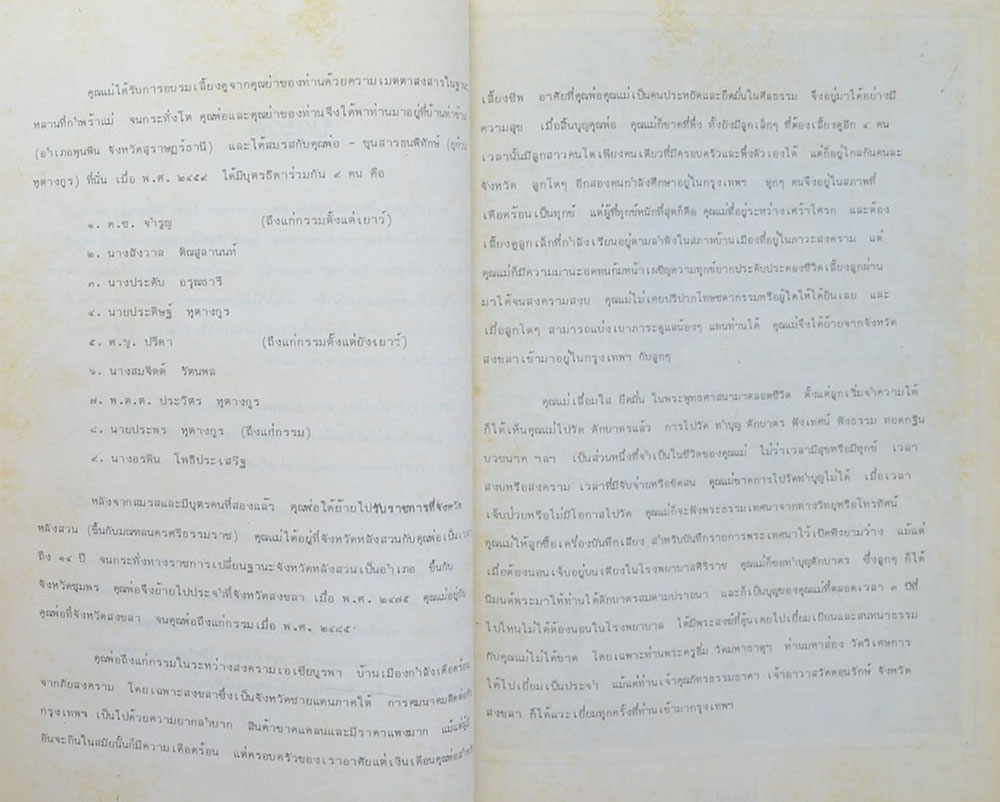 คุณแม่ได้รับการอบรมเลี้ยงดูจากคุณย่าของท่านด้วยความเมตตาสงสารในฐานะ
หลานที่กำพร้าแม่ จนกระทั่งโต คุณพ่อและคุณย่าของท่านจึงได้พาท่านมาอยู่ที่บ้านท่าข้าม
(อำเภอพุนพิน จังหวัดสุราษฎร์ธานี) และได้สมรสกับคุณพ่อ - ขุนสารธนพิทักษ์
หุตางกูร) ที่นั่น เมื่อ พ.ศ. ๒๔๕๙ ได้มีบุตรธิดาร่วมกัน ๙ คน คือ
๑. ด.ช. จำรูญ (ถึงแก่กรรมตั้งแต่เยาว์)
๒. นางสังวาล ติณสูลานนท์
๓. นางประดับ อรุณธารี
๔. นายประดิษฐ์ หุตางกูร
๕. ด.ญ. ปรีดา (ถึงแก่กรรมตั้งแต่ยังเยาว์)
๖. นางสมจิตต์ วัตนพล
๗. พ.ต.ต. ประวิตร หุตางกูร
๘. นายประพร หุตางกูร (ถึงแก่กรรม)
๙. นางอรพิน โพธิประเสริฐ
หลังจากสมรสและมีบุตรคนที่สองแล้ว คุณพ่อได้ย้ายไปรับราชการที่จังหวัด
หลังสวน (ขึ้นกับมณฑลนครศรีธรรมราช) คุณแม่ได้อยู่ที่จังหวัดหลังสวนกับคุณพ่อเป็นเวลา
ถึง ๑๔ ปี จนกระทั่งทางราชการเปลี่ยนฐานะจังหวัดหลังสวนเป็นอำเภอ ขึ้นกับ
จังหวัดชุมพร คุณพ่อจึงย้ายไปประจำที่จังหวัดสงขลา เมื่อ พ.ศ. ๒๔๗๕ คุณแม่อยู่กับ
คุณพ่อที่จังหวัดสงขลา จนคุณพ่อถึงแก่กรรมเมื่อ พ.ศ. ๒๔๘๕
คุณพ่อถึงแก่กรรมในระหว่างสงครามเอเซียบูรพา บ้านเมืองกำลังเดือดร้อน
จากภัยสงคราม โดยเฉพาะสงขลาซึ่งเป็นจังหวัดชายแดนภาคใต้ การคมนาคมติดต่อกับ
กรุงเทพฯ เป็นไปด้วยความยากลำบาก สินค้าขาดแคลนและมีราคาแพงมาก แม้แต่ผู้มี
อันจะกินในสมัยนั้นก็มีความเดือดร้อน แต่ครอบครัวของเราอาศัยแต่เงินเดือนคุณพ่อสำหรับ
เลี้ยงชีพ อาศัยที่คุณพ่อคุณแม่เป็นคนประหยัดและยึดมั่นในศีลธรรม จึงอยู่มาได้อย่างมี
ความสุข เมื่อสิ้นบุญคุณพ่อ คุณแม่ก็ขาดที่พึ่ง ทั้งยังมีลูกเล็กๆ ที่ต้องเลี้ยงดูอีก ๔ คน
เวลานั้นมีลูกสาวคนโตเพียงคนเดียวที่มีครอบครัวและพึ่งตัวเองได้ แต่ก็อยู่ไกลกันคนละ
จังหวัด ลูกโตๆ อีกสองคนกำลังศึกษาอยู่ในกรุงเทพฯ ทุกๆ คนจึงอยู่ในสภาพที่
เดือดร้อนเป็นทุกข์ แต่ผู้ที่ทุกข์หนักที่สุดก็คือ คุณแม่ที่อยู่ระหว่างเศร้าโศรก และต้อง
เลี้ยงดูลูกเล็กที่กำลังเรียนอยู่ตามลำพังในสภาพบ้านเมืองที่อยู่ในภาวะสงคราม แต่
คุณแม่ก็มีความมานะอดทนก้มหน้าเผชิญความทุกข์ยากประคับประคองชีวิตเลี้ยงลูกผ่าน
มาได้จนสงครามสงบ คุณแม่ไม่เคยปริปากโทษชตากรรมหรือผู้ใดให้ได้ยินเลย และ
เมื่อลูกโตๆ สามารถแบ่งเบาภาระดูแลน้องๆ แทนท่านได้ คุณแม่จึงได้ย้ายจากจังหวัด
สงขลาเข้ามาอยู่ในกรุงเทพฯ กับลูกๆ
คุณแม่เลื่อมใส ยึดมั่น ในพระพุทธศาสนามาตลอดชีวิต ตั้งแต่ลูกเริ่มจำความได้
ก็ได้เห็นคุณแม่ไปวัด ตักบาตรแล้ว การไปวัด ทำบุญ ตักบาตร ฟังเทศน์ ฟังธรรม ทอดกฐิน
บวชนาค ฯลฯ เป็นส่วนหนึ่งที่จำเป็นในชีวิตของคุณแม่ ไม่ว่าเวลามีสุขหรือมีทุกข์ เวลา
สงบหรือสงคราม เวลาที่มีจับจ่ายหรือขัดสน คุณแม่ขาดการไปวัดทำบุญไม่ได้ เมื่อเวลา
เจ็บป่วยหรือไม่มีโอกาสไปวัด คุณแม่ก็จะฟังพระธรรมเทศนาจากทางวิทยุหรือโทรทัศน์
คุณแม่ให้ลูกซื้อเครื่องบันทึกเสียง สำหรับบันทึกรายการพระเทศนาไว้เปิดฟังยามว่าง แม้แต่
เมื่อต้องนอนเจ็บอยู่บนเตียงในโรงพยาบาลศิริราช คุณแม่ก็ขอทำบุญตักบาตร ซึ่งลูกๆ ก็ได้
นิมนต์พระมาให้ท่านได้ตักบาตรสมตามปรารถนา และก็เป็นบุญของคุณแม่ที่ตลอดเวลา ๓ ปีที่
ไปไหนไม่ได้ต้องนอนในโรงพยาบาล ได้มีพระสงฆ์ที่คุ้นเคยไปเยี่ยมเยียนและสนทนาธรรม
กับคุณแม่ไม่ได้ขาด โดยเฉพาะท่านพระครูอิ่ม วัดมหาธาตุฯ ท่านมหาส่อง วัดวิเศษการ
ได้ไปเยี่ยมเป็นประจำ แม้แต่ท่านเจ้าคุณภัทรธรรมธาดา เจ้าอาวาสวัดดอนรักษ์ จังหวัด
สงขลา ก็ได้แวะเยี่ยมทุกครั้งที่ท่านเข้ามากรุงเทพฯ